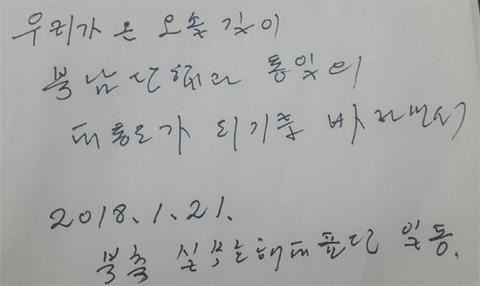 우리가 온 오솔길이
북남단합과 통일의
대통로가 되기를 바라면서
2018.1.21.
북측 실무 대표단 일동.